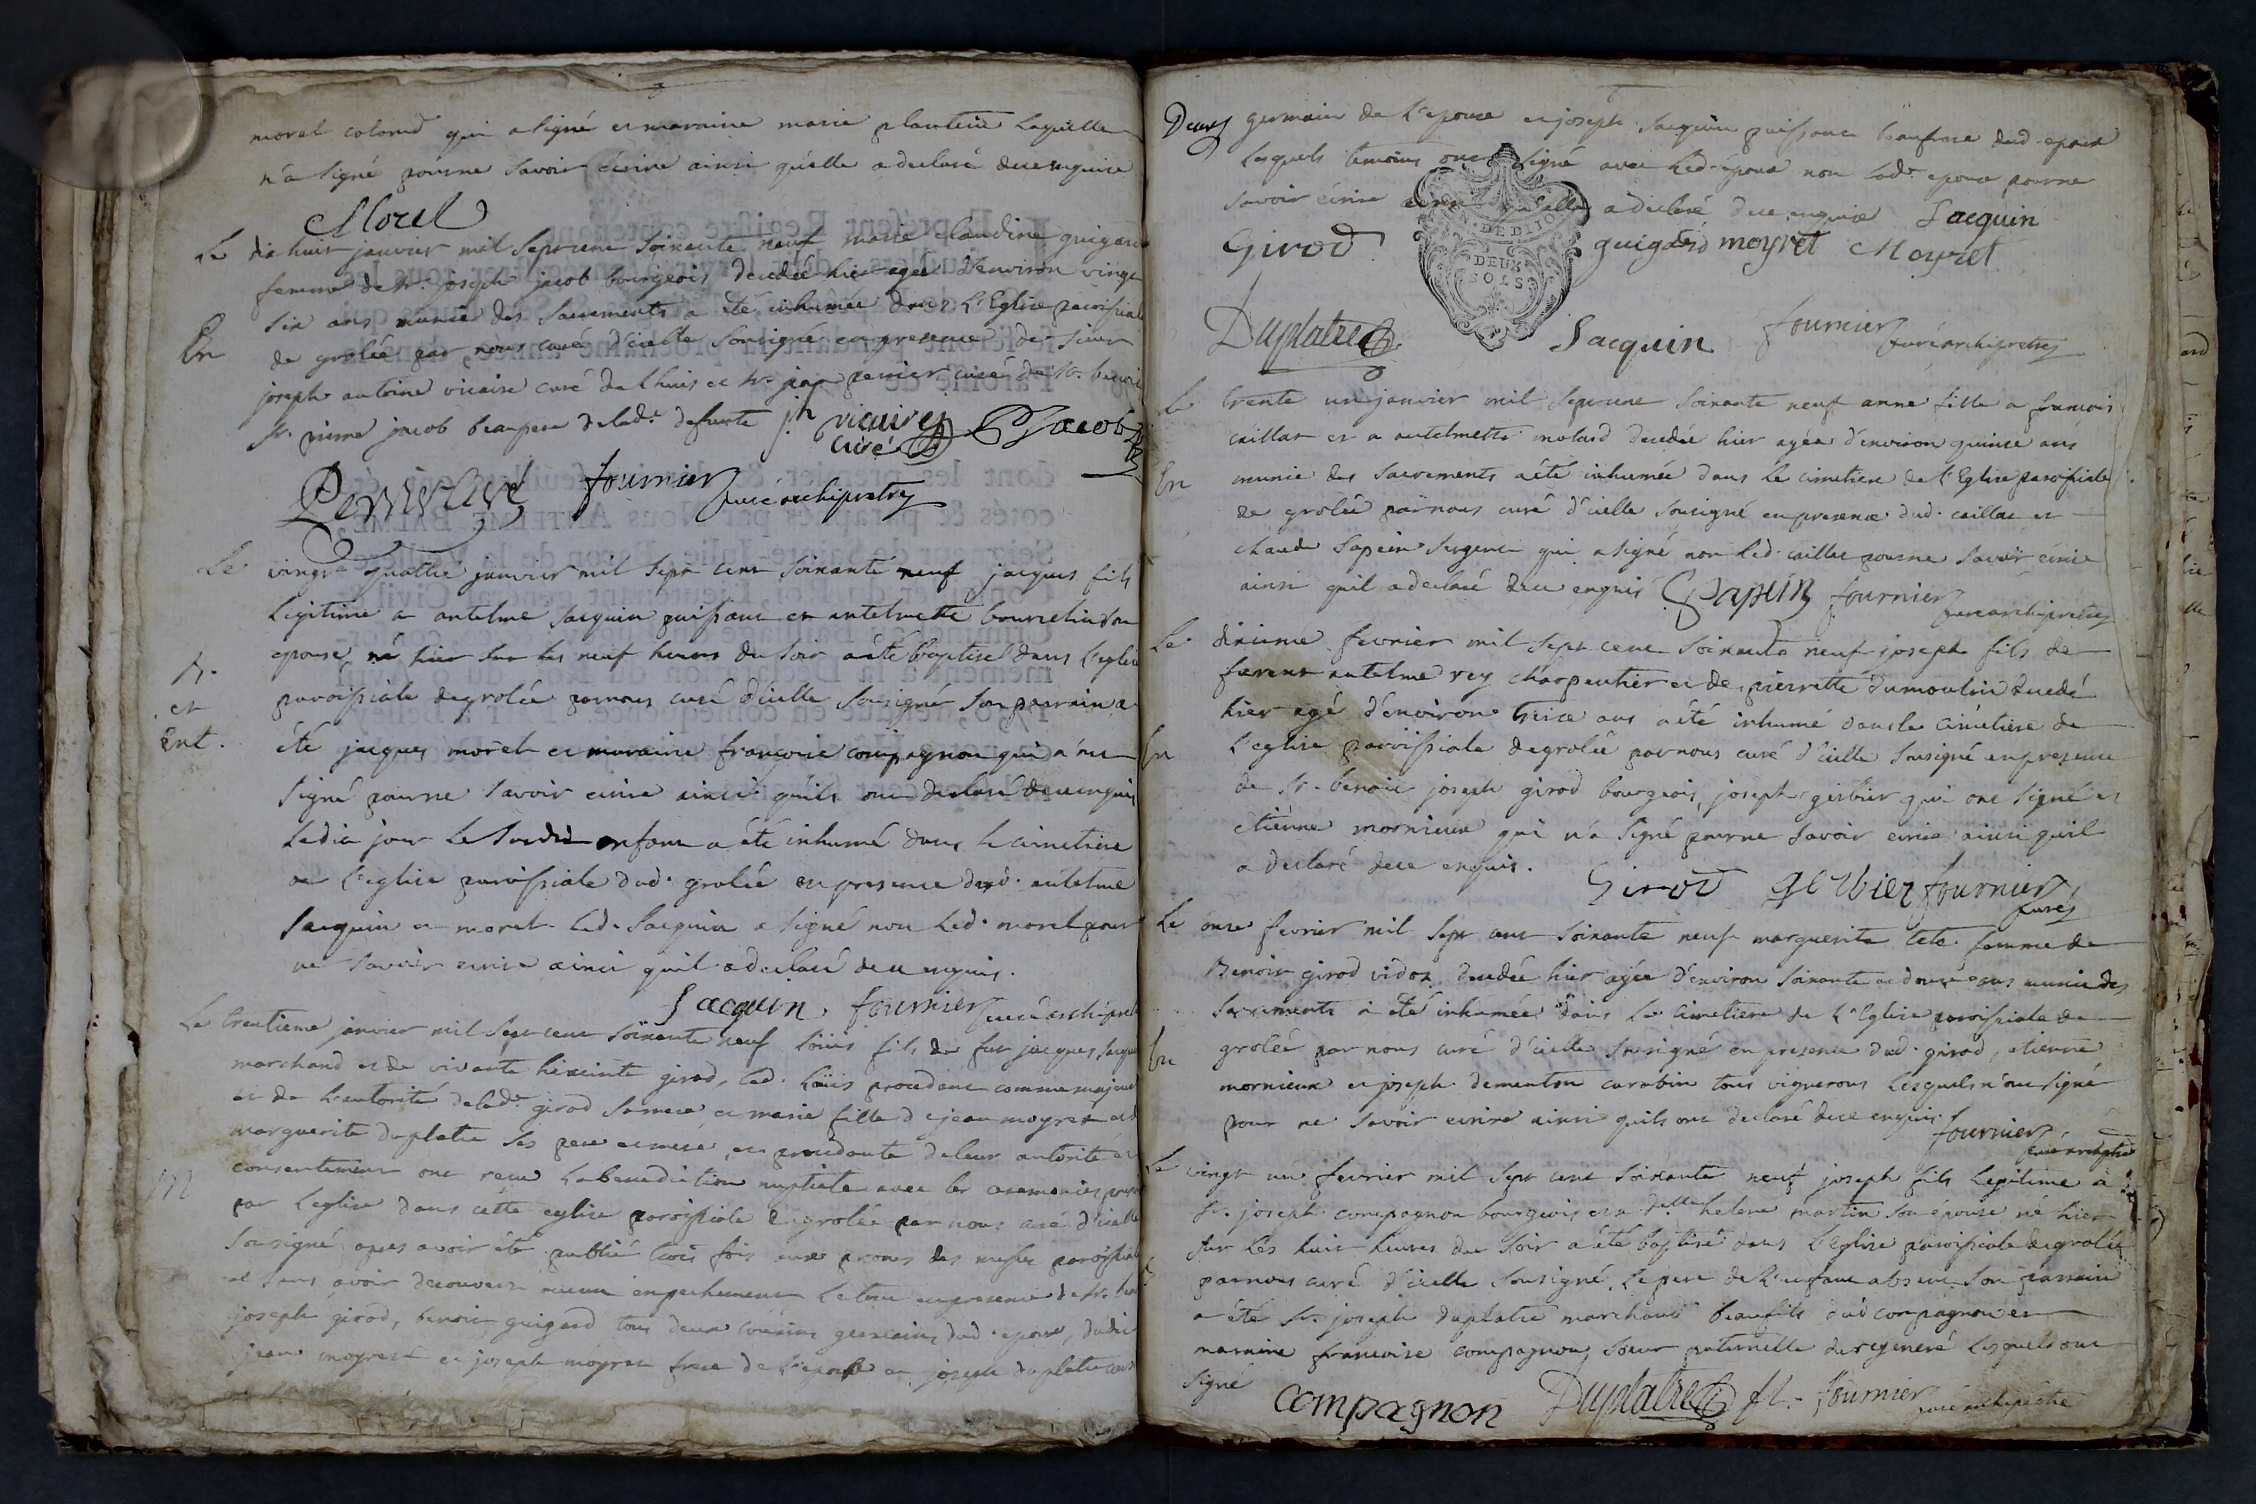 morel colond qui a signé et marraine marie planteri laquelle
n'a signé pour ne savoir écrire ainsi qu'elle a declaré de ce enquise
Morel
Le dix huit janvier mil sept cent soixante neuf marie claudine guigard
femme de Sr. joseph jacob bourgeois decedée hier agée d'environ vingt
six ans munie des sacrements a été inhumée dans l'Eglise paroissiale
En de grolée par nous curé d'icelle soussigné en presence des sieurs
joseph antoine vicaire curé de lhuis et Sr. perrier curé de St. benoit
Sr. pierre jacob beaupere de lade. defunte jh vicaire curé PJacob
Perrier curé fournier curé archipretre
Le vingt quatre janvier mil sept cent soixante neuf jacques fils
legitime a antelme jacquin puissant et antelmette bourrelin son
epouse né hier sur les neuf heures du soir a été baptisé dans l'eglise
B. paroissiale de grolée par nous curé d'icelle soussigné son parrain a
et été jacques morel et marraine françoise compagnon qui n'ont
Ent. signé pour ne savoir ecrire ainsi qu'ils ont declaré de ce enquis
Ledit jour le susdit enfant a été inhumé dans le cimetiere
de l'eglise paroissiale dud. grolée en presence dud. antelme
jacquin et morel led. jacquin a signé non led. morel pour
ne savoir ecrire ainsi qu'il a declaré de ce enquis.
Jacquin fournier curé archipretre
Le trentieme janvier mil sept cent soixante neuf Loüis fils de feu jacques jacquin
marchand et de vivante hiacinte girod, led. Loüis procedant comme majeur
et de l'autorité de lade. girod sa mere et marie fille de jean moyret et de
marguerite duplatre ses pere et mere, et procedante de leur autorité et
M consentement ont reçu la benediction nuptiale avec les ceremonies
par l'eglise dans cette eglise paroissiale de grolée par nous curé d'icelle
soussigné apres avoir été publié trois fois aux prones des messes paroissiales
et sans avoir decouvert aucun empechement le tout en presence de Sr. benoit
joseph girod, benoit guigard tous deux cousins germains dud. epoux, dudit
jean moyret et joseph moyret frere de l'epouse et joseph duplatre cousin
Deux germain de l'epouse et joseph jacquin puissant beaufrere dud. epoux
lesquels temoins ont signé avec led. epoux non lade. epouse pour ne
savoir écrire ainsi qu'elle a declaré de ce enquise Jacquin
DEUX SOLS
Girod guigard moyret Moyret
Duplatre Jacquin fournier curé archipretre
Le trente un janvier mil sept cent soixante neuf anne fille a françois
caillat et a antelmette molard decedée hier agée d'environ quinze ans
En munie des sacrements a été inhumée dans le cimetiere de l'Eglise paroissiale
de grolée par nous curé d'icelle soussigné en presence dud. caillat et
claude sapein sergent qui a signé non led. caillat pour ne savoir ecrire
ainsi qu'il a declaré de ce enquis Sapein fournier curé archipretre
Le dixieme fevrier mil sept cent soixante neuf joseph fils de
antelme rey charpentier et de pierrette dumoulin decedé
hier agé d'environ treize ans a été inhumé dans le cimetiere de
En l'eglise paroissiale de grolée par nous curé d'icelle soussigné en presence
de Sr. benoit joseph girod bourgeois, joseph gerbier qui ont signé et
etienne mornieux qui n'a signé pour ne savoir ecrire ainsi qu'il
a declaré de ce enquis. Girod gerbier fournier curé
Le onze fevrier mil sept cent soixante neuf marguerite tete femme de
Benoit girod vidoz decedée hier agée d'environ soixante et douze ans munie des
sacrements a été inhumée dans le cimetiere de l'Eglise paroissiale de
En grolée par nous curé d'icelle soussigné en presence dud. girod, etienne
mornieux et joseph dementon carabin tous vignerons lesquels n'ont signé
pour ne savoir ecrire ainsi qu'ils ont declaré de ce enquis. fournier
curé archipretre
Le vingt un fevrier mil sept cent soixante neuf joseph fils legitime à
Sr. joseph compagnon bourgeois et a delle helene martin son épouse né hier
sur les huit heures du soir a été baptisé dans l'eglise paroissiale de grolée
par nous curé d'icelle soussigné, le pere de l'enfant absent son parrain
a été Sr. joseph duplatre marchand beaufils dud compagnon et
marraine françoise compagnon, soeur paternelle du regeneré lesquels ont
signé compagnon Duplatre fournier curé archipretre